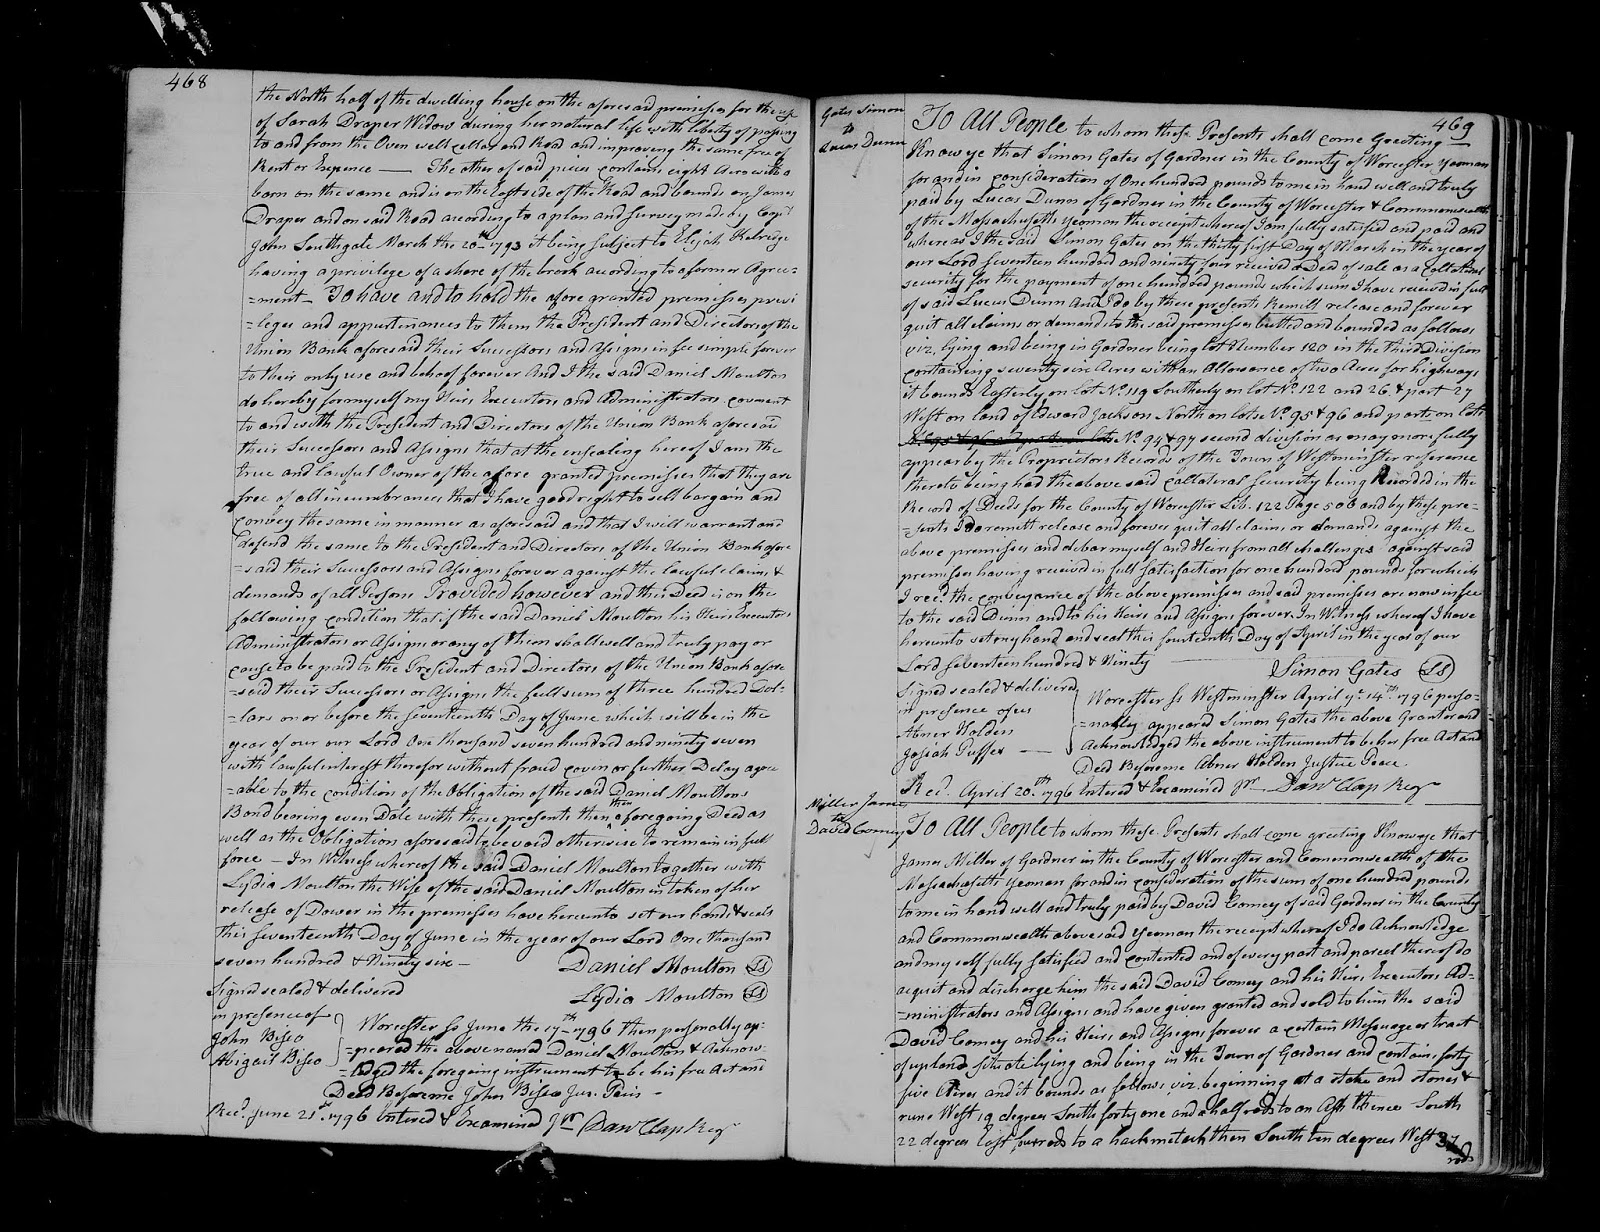 468
the North half of the dwelling house on the aforesaid premises for the use
of Sarah Draper Widow during her natural life with liberty of passing
to and from the Oven well cellar and Road and improving the same free of
Rent or Expence — The other of said pieces contains eight Acres with a
barn on the same and is on the East side of the Road and bounds on James
Draper and on said Road according to a plan and survey made by Capt
John Southgate March the 20th 1793 it being subject to Elijah
having a privilege of a share of the brook according to a former Agree=
=ment — To have and to hold the afore granted premises privi
=leges and appurtenances to them the President and Directors of the
Union Bank aforesaid their Successors and Assigns in fee simple forever
to their only use and behoof forever And I the said Daniel Moulton
do hereby for myself my Heirs Executors and Administrators covenant
to and with the President and Directors of the Union Bank aforesaid
their Successors and Assigns that at the ensealing hereof I am the
true and lawful Owner of the afore granted premises that they are
free of all incumbrances that I have good right to sell bargain and
convey the same in manner as aforesaid and that I will warrant and
defend the same to the President and Directors of the Union Bank afore
=said their Successors and Assigns forever against the lawful claims &
demands of all Persons Provided however and this Deed is on the
following condition that if the said Daniel Moulton his Heirs Executors
Administrators or Assigns or any of them shall well and truly pay or
cause to be paid to the President and Directors of the Union Bank afore
=said their Successors or Assigns the full sum of three hundred Dol=
=lars on or before the seventeenth Day of June which will be in the
year of our our Lord One thousand seven hundred and ninety seven
with lawful interest therefor without fraud covin or further Delay agree
=able to the condition of the Obligation of the said Daniel Moultons
Bond bearing even Date with these presents then aforegoing Deed as
well as the Obligation aforesaid to be void otherwise to remain in full
force — In Witness whereof the said Daniel Moulton together with
Lydia Moulton the Wife of the said Daniel Moulton in token of her
release of Dower in the premises have hereunto set our hands & seals
this seventeenth Day of June in the year of our Lord One thousand
seven hundred & Ninety six — Daniel Moulton Ls
Signed sealed & delivered Lydia Moulton Ls
in presence of
John Bisco
Abigail Bisco
Worcester ss June the 17th 1796 then personally ap=
=peared the above named Daniel Moulton & Acknow=
=ledged the foregoing instrument to be his free Act and
Deed Before me John Bisco Jus. Pacis —
Recd. June 21st 1796 Entered & Examined pr Danl Clap Regr
469
Gates Simon
to
Lucas Dunn
To All People to whom these Presents shall come Greeting
Know ye that Simon Gates of Gardner in the County of Worcester yeoman
for and in consideration of One hundred pounds to me in hand well and truly
paid by Lucas Dunn of Gardner in the County of Worcester & Commonwealth
of the Massachusetts yeoman the receipt whereof I am fully satisfied and paid and
whereas I the said Simon Gates on the thirty first Day of March in the year of
our Lord seventeen hundred and ninety four received a Deed of sale as a collateral
security for the payment of one hundred pounds which sum I have received in full
of said Lucas Dunn And I do by these presents Remitt release and forever
quit all claims or demands to the said premises butted and bounded as follows
viz, lying and being in Gardner being lot Number 120 in the third Division
containing seventy six Acres with an Allowance of two Acres for highways
it bounds Easterly on lot No. 119 Southerly on lot No. 122 and 26 & part 27
West on land of Edward Jackson North on lots No. 95 & 96 and parts on lots
No. 94 & 97 second division as may more fully
appear by the Proprietors Records of the Town of Westminster reference
thereto being had the above said collateral security being Recorded in the
Record of Deeds for the County of Worcester Lib. 122 Page 506 and by these pre=
=sents I do remitt release and forever quit all claims or demands against the
above premises and debar myself and Heirs from all challenges against said
premises having received in full satisfaction for one hundred pounds for which
I recd. the conveyance of the above premises and said premises are now in fee
to the said Dunn and to his Heirs and Assigns forever. In Witness whereof I have
hereunto set my hand and seal this fourteenth Day of April in the year of our
Lord Seventeen hundred & Ninety — Simon Gates Ls
Signed sealed & delivered
in presence of us
Abner Holden
Josiah Puffer —
Worcester ss Westminster April ye 14th. 1796 perso=
=nally appeared Simon Gates the above Grantor and
Acknowledged the above instrument to be his free Act and
Deed Before me Abner Holden Justice Peace.
Recd. April 20th. 1796 Entered & Examined pr Danl Clap Regr
Miller James
to
David Comey
To All People to whom these Presents shall come greeting Know ye that
James Miller of Gardner in the County of Worcester and Commonwealth of the
Massachusetts yeoman for and in consideration of the sum of one hundred pounds
to me in hand well and truly paid by David Comey of said Gardner in the County
and Commonwealth above said yeoman the receipt whereof I do Acknowledge
and my self fully satisfied and contented and of every part and parcel thereof do
acquit and discharge him the said David Comey and his Heirs Executors Ad=
=ministrators and Assigns and have given granted and sold to him the said
David Comey and his Heirs and Assigns forever a certain Messuage or tract
of upland situate lying and being in the Town of Gardner and contains forty
five Acres and it bounds as follows viz. beginning at a stake and stones &
runs West 19 degrees South forty one and a half rods to an Ash thence South
22 degrees East rods to a hackmetack then South ten degrees West 37
rods